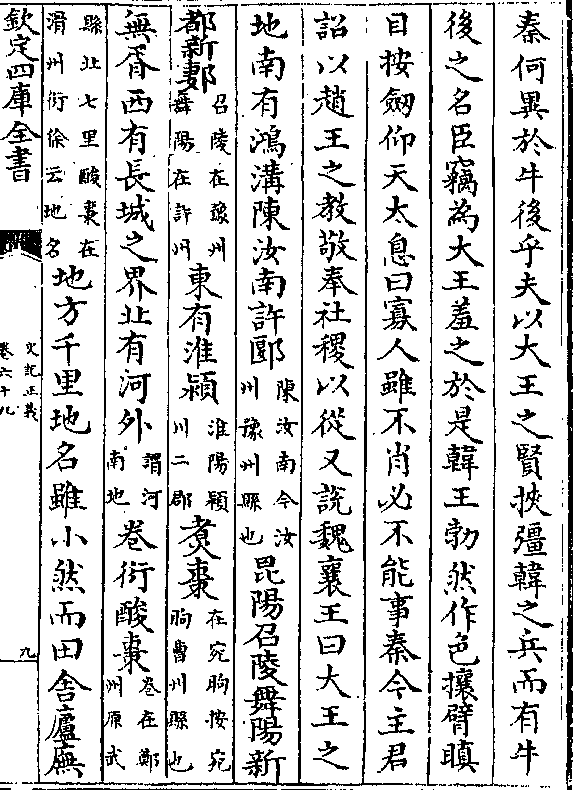 秦何異於牛後乎夫以大王之賢挾彊韓之兵而有牛
後之名臣竊為大王羞之於是韓王勃然作色攘臂瞋
目按劒仰天太息曰寡人雖不肖必不能事秦今主君
詔以趙王之教敬奉社稷以從又說魏襄王曰大王之
地南有鴻溝陳汝南許郾陳汝南今汝州豫州縣也昆陽召陵舞陽新
都新郪召陵在豫州舞陽在許州東有淮潁淮陽潁川二郡煑棗在宛朐按宛朐曹州縣也
無胥西有長城之界北有河外謂河南地卷衍酸棗卷在鄭州原武
縣北七里酸棗在滑州衍徐云地名地方千里地名雖小然而田舍廬廡
欽定四庫全書
史記正義
卷六十九
九